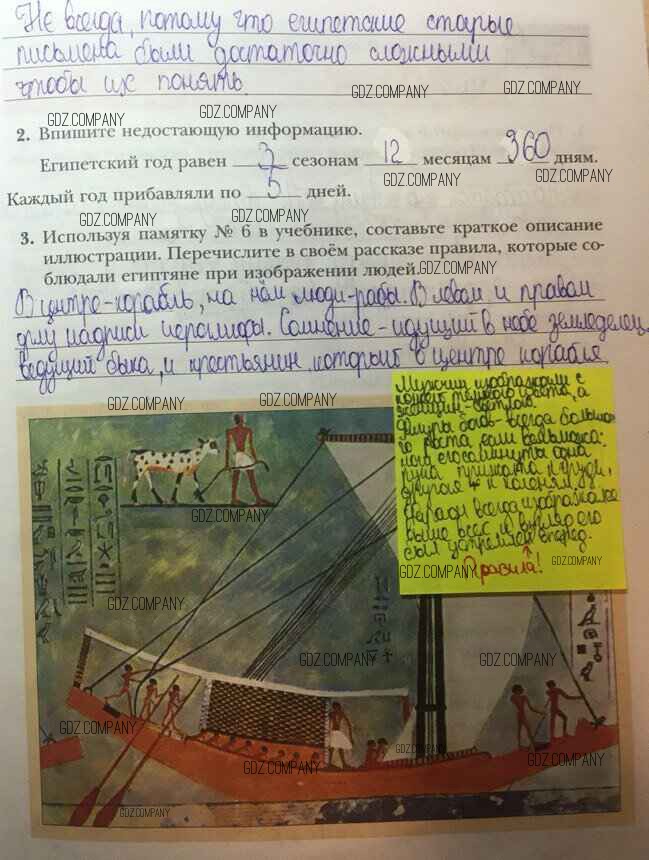 Не всегда, потому что египетские старые
письмена были достаточно сложными
чтобы их понять.
GDZ.COMPANY GDZ.COMPANY GDZ.COMPANY GDZ.COMPANY
2. Впишите недостающую информацию.
Египетский год равен 3 сезонам 12 месяцам 360 дням.
GDZ.COMPANY GDZ.COMPANY
Каждый год прибавляли по 5 дней.
GDZ.COMPANY GDZ.COMPANY
3. Используя памятку № 6 в учебнике, составьте краткое описание
иллюстрации. Перечислите в своём рассказе правила, которые со-
блюдали египтяне при изображении людей.
GDZ.COMPANY
В центре-корабль, на нём люди-рабы. В левом и правом
углу надписи иероглифы. Сомнение - идущий в небе земледелец,
ведущий быка, и крестьянин, который в центре корабля
GDZ.COMPANY GDZ.COMPANY
Мужчин изображали с
кожей темного цвета, а
женщин - светлого.
Фигуры богов - всегда большо-
го роста, если вельможа:
нога его сдвинуты одна
рука прижата к груди,
другая к коленям,
всегда изображался
выше всех и взгляд его
был устремлен вперед.
Правила!
GDZ.COMPANY
GDZ.COMPANY
GDZ.COMPANY
GDZ.COMPANY
GDZ.COMPANY GDZ.COMPANY
GDZ.COMPANY
GDZ.COMPANY
GDZ.COMPANY GDZ.COMPANY
GDZ.COMPANY